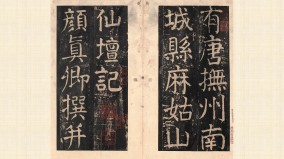 有唐撫州南
城縣麻姑山
仙壇記
顏真卿撰并